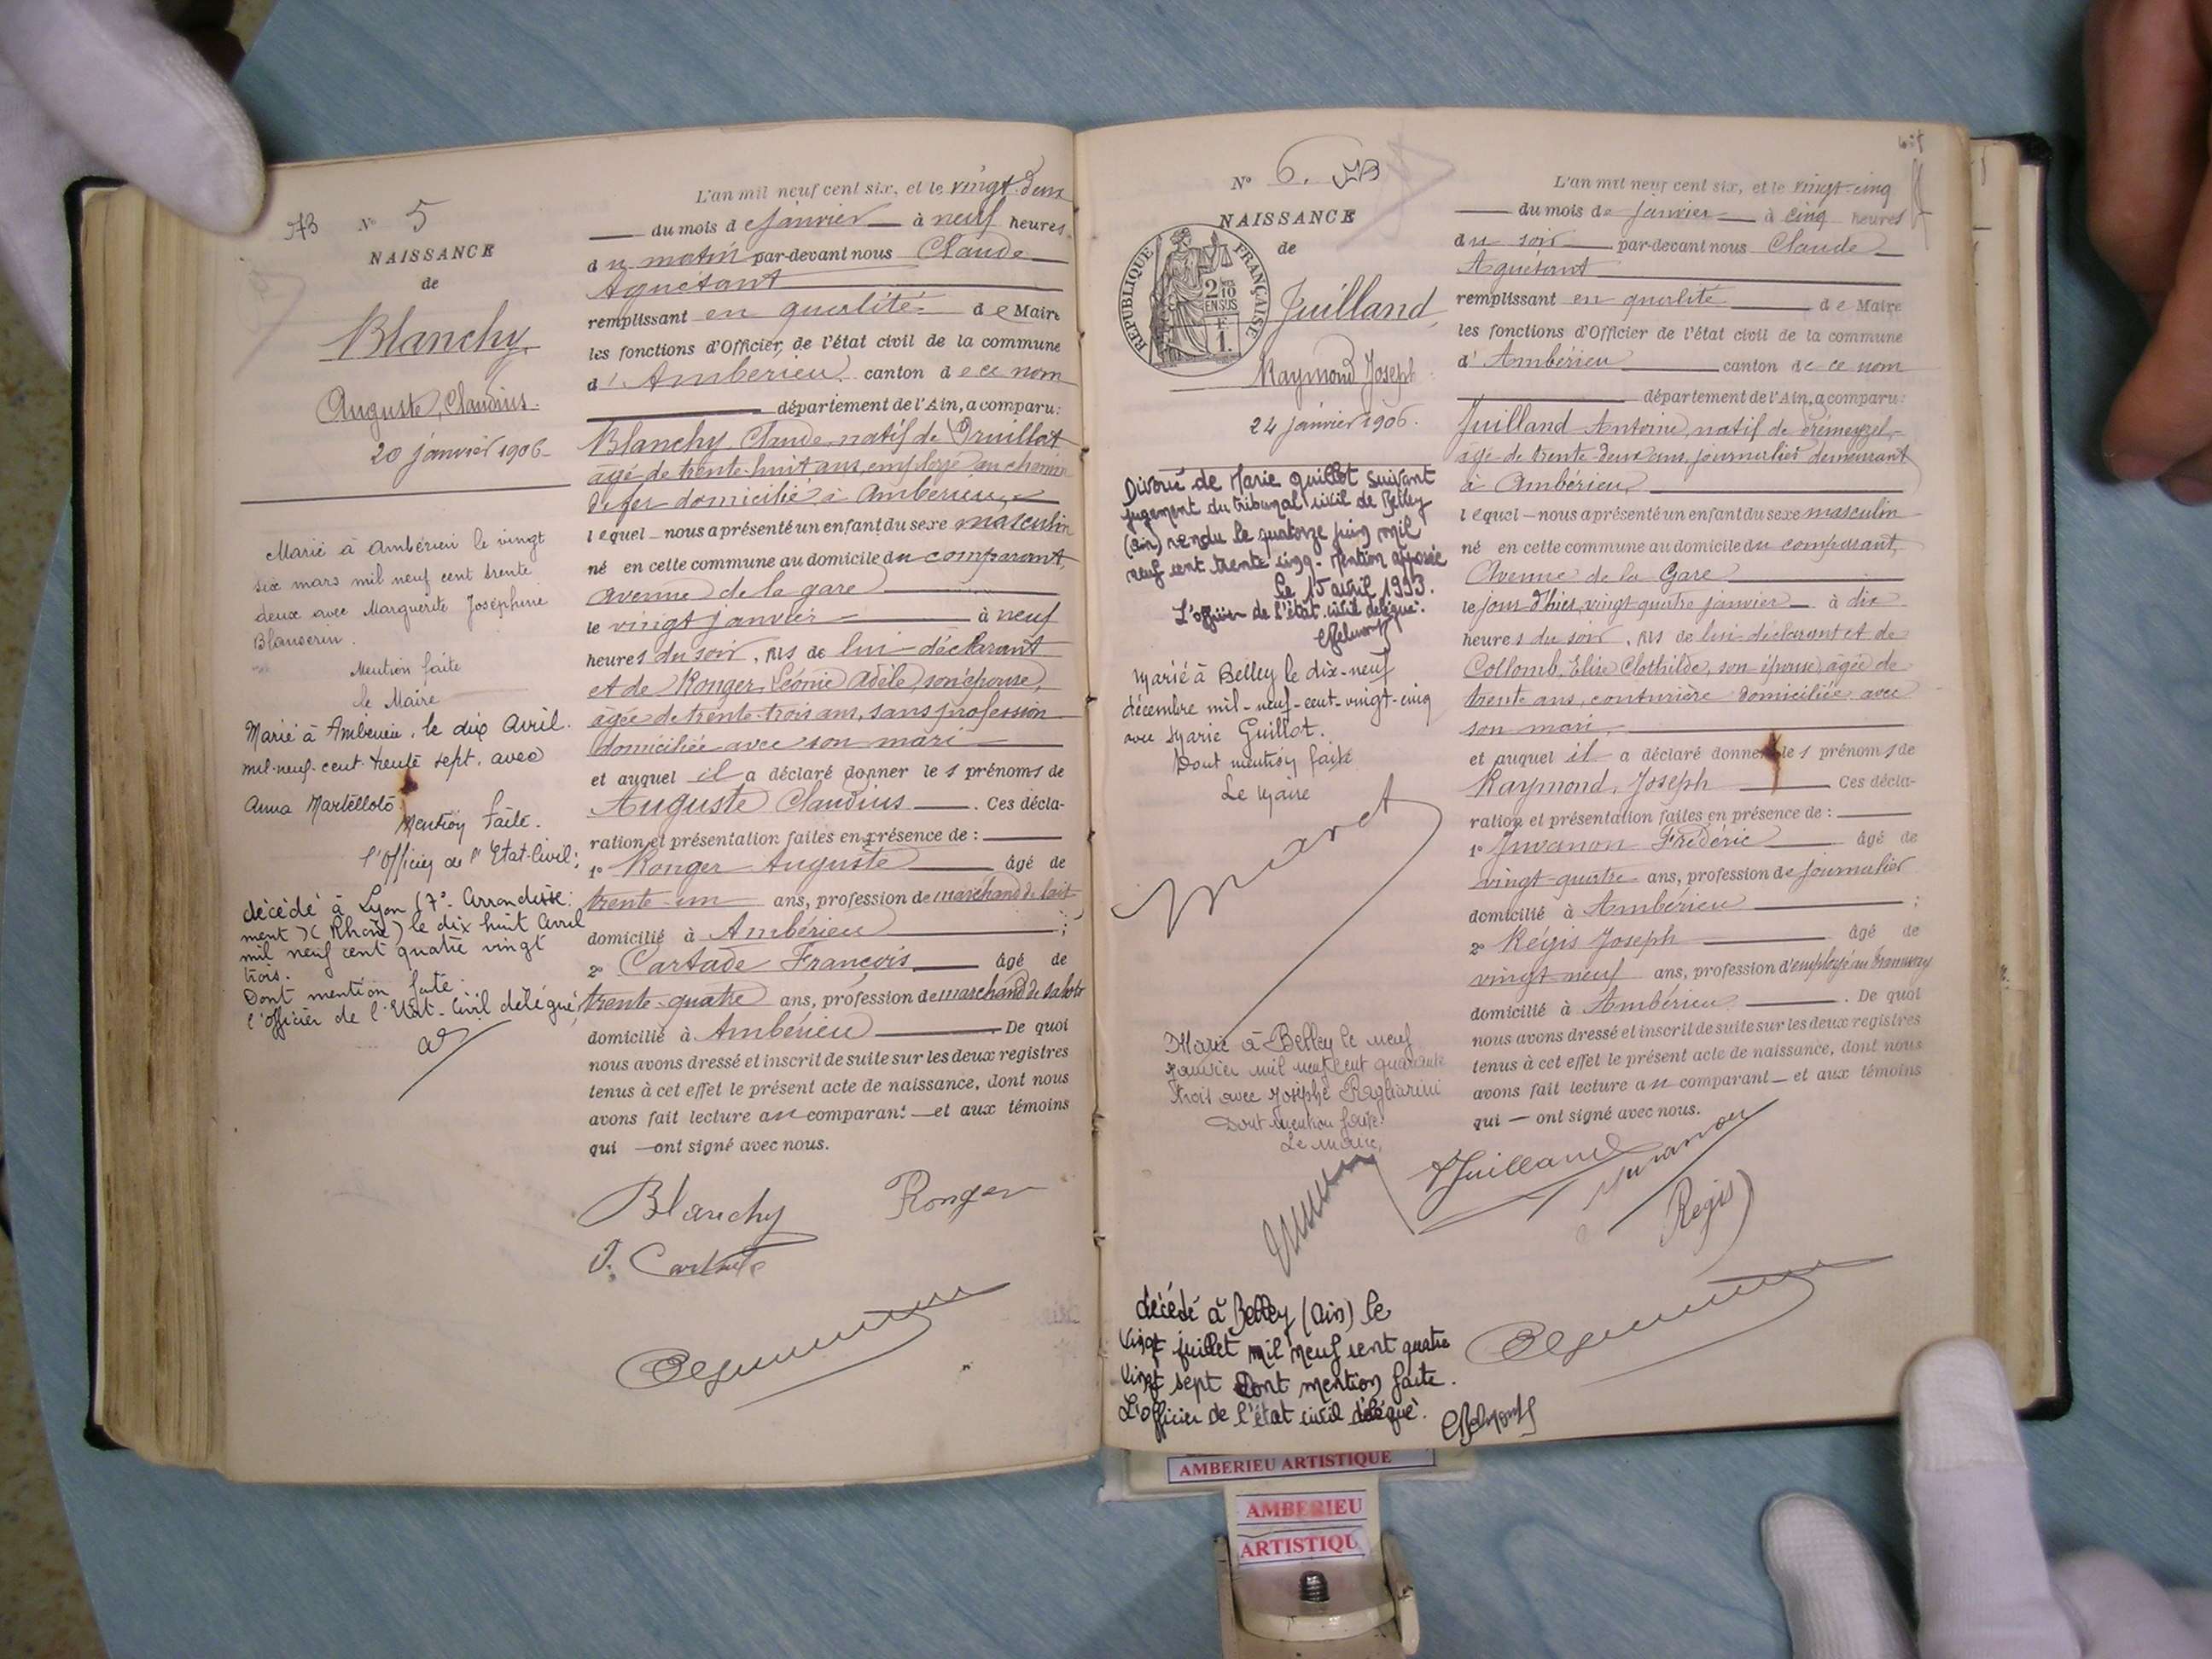 73 N° 5
NAISSANCE
de
Blanchy
Auguste, Claudius.
20 janvier 1906
Marié à Ambérieu le vingt
six mars mil neuf cent trente
deux avec Marguerite Joséphine
Mention faite
le Maire
Marié à Ambérieu, le dix Avril.
mil-neuf-cent-trente sept, avec
Anna Martelloto
Mention faite.
l'Officier de l'Etat-Civil:
décédé à Lyon (7e Arrondisse-
ment) (Rhône) le dix huit Avril
mil neuf cent quatre vingt
trois.
Dont mention faite.
l'officier de l'Etat-Civil délégué,
L'an mil neuf cent six, et le vingt-deux
du mois de janvier à neuf heures
du matin par-devant nous Claude
Aguétant
remplissant en qualité de Maire
les fonctions d'Officier de l'état civil de la commune
d'Ambérieu canton de ce nom
département de l'Ain, a comparu:
Blanchy Claude natif de
âgé de trente-huit ans, employé au chemin
de fer domicilié à Ambérieu,
lequel nous a présenté un enfant du sexe masculin
né en cette commune au domicile du comparant,
avenue de la gare
le vingt janvier à neuf
heures du soir, fils de lui déclarant
et de Ronger Léonie Adèle, son épouse,
âgée de trente-trois ans, sans profession
domiciliée avec son mari
et auquel il a déclaré donner les prénoms de
Auguste Claudius . Ces décla-
ration et présentation faites en présence de :
1° Ronger Auguste âgé de
trente-un ans, profession de marchand de lait
domicilié à Ambérieu ;
2° Cartade François âgé de
trente-quatre ans, profession de marchand de sabots
domicilié à Ambérieu De quoi
nous avons dressé et inscrit de suite sur les deux registres
tenus à cet effet le présent acte de naissance, dont nous
avons fait lecture au comparant et aux témoins
qui ont signé avec nous.
Blanchy Ronger
N° 6. 73
NAISSANCE
de
RÉPUBLIQUE FRANÇAISE
Juilland,
Raymond Joseph
24 janvier 1906.
Divorcé de Marie Guillot suivant
jugement du tribunal civil de Belley
(Ain) rendu le quatorze juin mil
neuf cent trente cinq. Mention apposée
le 15 avril 1993.
L'officier de l'état civil délégué.
Marié à Belley le dix-neuf
décembre mil-neuf-cent-vingt-cinq
avec Marie Guillot.
Dont mention faite
Le Maire
Maret
Marié à Belley le neuf
janvier mil neuf cent quarante
trois avec Josèphe Pagliarini
Dont mention faite.
Le Maire,
décédé à Belley (Ain) le
vingt juillet mil neuf cent quatre
vingt sept Dont mention faite.
L'officier de l'état civil délégué.
L'an mil neuf cent six, et le vingt-cinq
du mois de janvier à cinq heures
du soir par-devant nous Claude
Aguétant
remplissant en qualité de Maire
les fonctions d'Officier de l'état civil de la commune
d'Ambérieu canton de ce nom
département de l'Ain, a comparu:
Juilland Antoine, natif de
âgé de trente-deux ans, journalier demeurant
à Ambérieu,
lequel nous a présenté un enfant du sexe masculin
né en cette commune au domicile du comparant,
Avenue de la Gare
le jour d'hier, vingt-quatre janvier à dix
heures du soir, fils de lui déclarant et de
Collomb, Elise Clothilde, son épouse, âgée de
trente ans, couturière domiciliée avec
son mari,
et auquel il a déclaré donner les prénoms de
Raymond, Joseph Ces décla-
ration et présentation faites en présence de :
1° Juvanon Frédéric âgé de
vingt-quatre ans, profession de journalier
domicilié à Ambérieu ;
2° Régis Joseph âgé de
vingt neuf ans, profession d'employé au tramway
domicilié à Ambérieu . De quoi
nous avons dressé et inscrit de suite sur les deux registres
tenus à cet effet le présent acte de naissance, dont nous
avons fait lecture au comparant et aux témoins
qui ont signé avec nous.
Juilland Juvanon
Régis
AMBERIEU ARTISTIQUE
AMBERIEU
ARTISTIQU